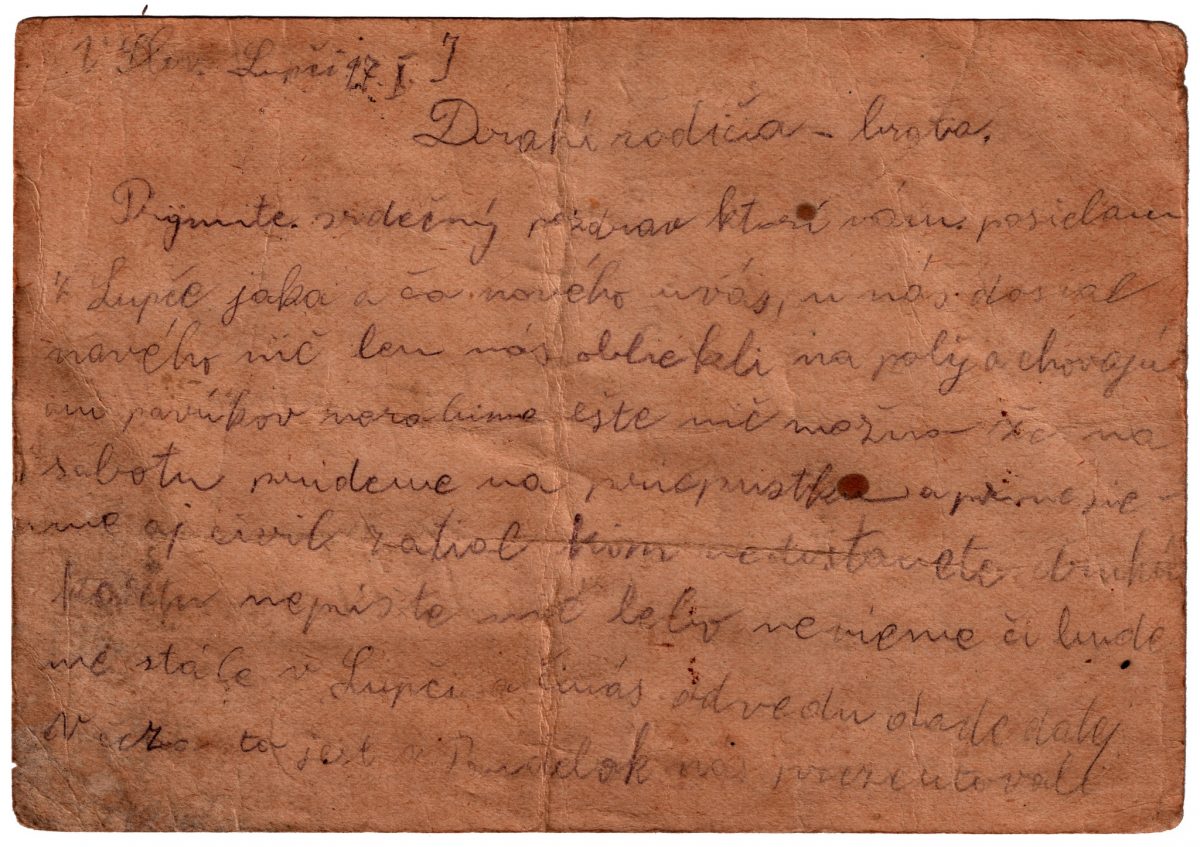 V Slov. Lupči 17. I.
Drahí rodičia - brata.
Prýmite srdečný pozdrav ktorí vám posielam
z Lupče jaka a čo nového uvás, u nás dosial
nového nič len nás obliekli na polý a chovajú
páríkov narobíme ešte nič možno že na
sabotu prideme na priepustku a prinesie-
me aj civil zatial kím nedostavete druhú
nepíšte nič lebo nevieme či bude
me stále v Lupči a či nás odvedú daľej
Včera to jest v Pondelok nás prezentovali